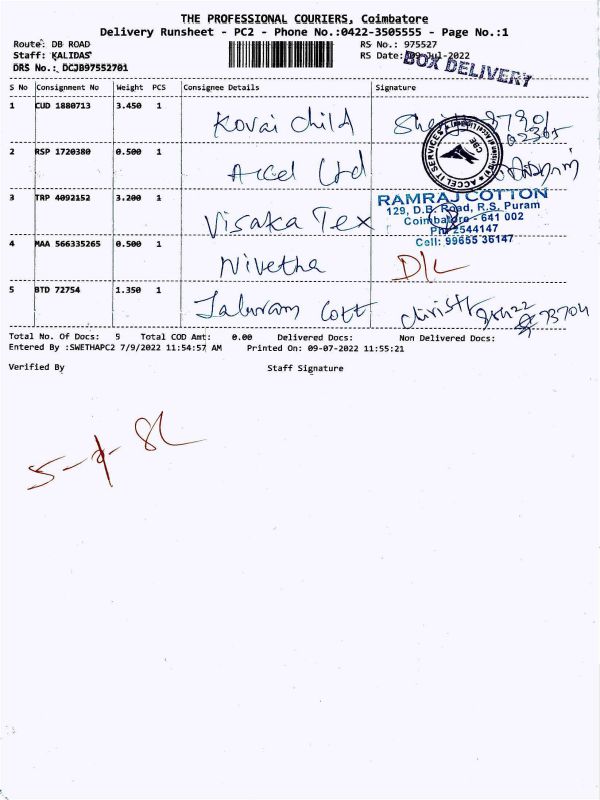 THE PROFESSIONAL COURIERS, Coimbatore
Delivery Runsheet - PC2 - Phone No.:0422-3505555 - Page No.:1
Route: DB ROAD
RS No.: 975527
Staff: KALIDAS
RS Date: 09-Jul-2022
DRS No.: DCJB97552701
BOX DELIVERY
S No Consignment No Weight PCS Consignee Details Signature
1 CUD 1880713 3.450 1 Kovai Child
2 RSP 1720380 0.500 1 Accel Ltd
ACCEL IT SERVICES
CBE
3 TRP 4092152 3.200 1 Visaka Tex
RAMRAJ COTTON
129, D.B. Road, R.S. Puram
Coimbatore - 641 002
Ph: 2544147
Cell: 99655 36147
4 MAA 566335265 0.500 1 Nivetha D/L
5 BTD 72754 1.350 1 Cott
Total No. Of Docs: 5 Total COD Amt: 0.00 Delivered Docs: Non Delivered Docs:
Entered By :SWETHAPC2 7/9/2022 11:54:57 AM Printed On: 09-07-2022 11:55:21
Verified By Staff Signature